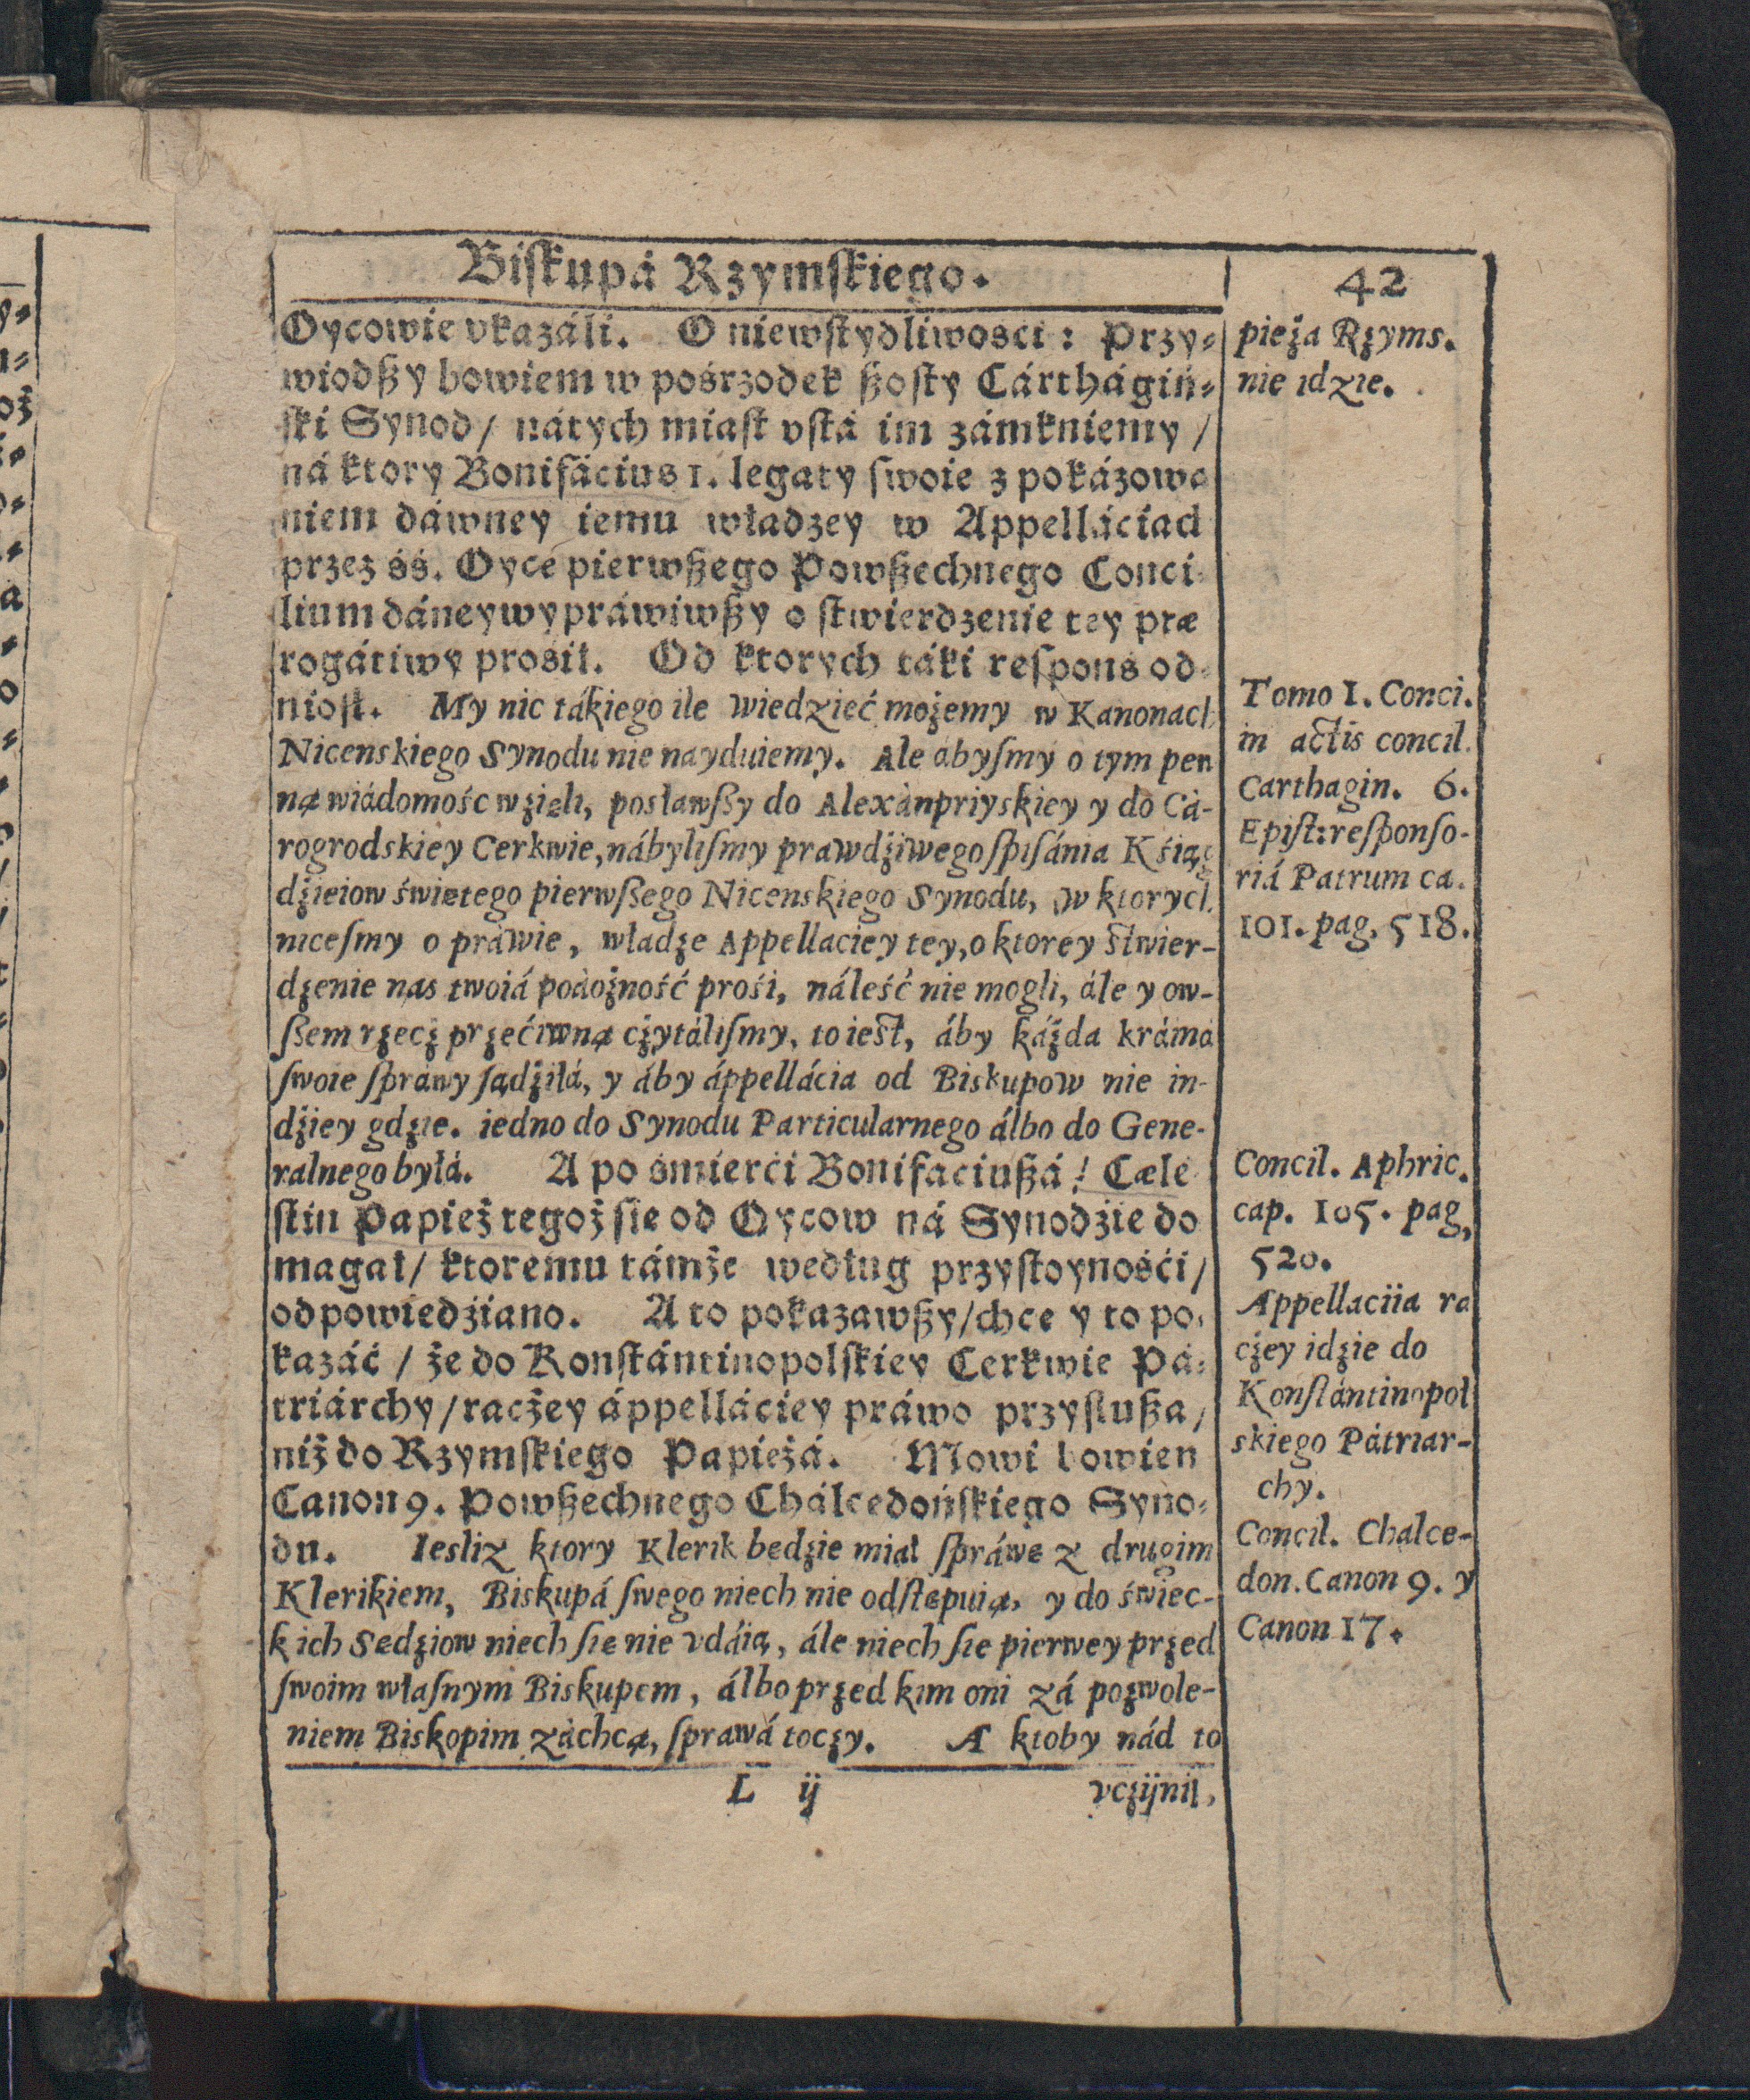 Biſkupá Rzymſkiego.
42
Oycowie vkazáli. O niewſtydliwosći: Przy-
wiodßy bowiem w pośrzodek ßoſty Cárthágiń-
ſki Synod/ nátych miaſt vſtá im zámkniemy/
ná ktory Bonifácius 1. legaty ſwoie z pokázowa
niem dáwney iemu władzey w Appelláciach
przez śś. Oyce pierwßego Powßechnego Conci-
lium dáney wypráwiwßy o ſtwierdzenie tey præ
rogátiwy prosił. Od ktorych táki reſpons od-
niosł. My nic tákiego ile wiedzieć możemy w Kanonach
Nicenskiego Synodu nie nayduiemy. Ale abyſmy o tym pew
ną wiádomośc wzięli, posławßy do Alexànpriyskiey y do Cá-
rogrodskiey Cerkwie, nábyliſmy prawdźiwego ſpiſánia Kśiąg
dźieiow świętego pierwßego Nicenskiego Synodu, w ktorych
niceſmy o práwie, władze Appellaciey tey, o ktorey ſtwier-
dzenie nas twoiá pobożność prośi, náleść nie mogli, ále y ow-
ßem rzecz przećiwną cżytáliſmy, to ieſt, áby káżda kráina
ſwoie ſprawy ſądźiłá, y áby áppellácia od Biskupow nie in-
dźiey gdzie. iedno do Synodu Particularnego álbo do Gene-
ralnego byłá. A po śmierći Bonifaciußá/ Cæle
ſtin Papież tegoż ſie od Oycow ná Synodźie do
magał/ ktoremu támże według przyſtoynośći/
odpowiedźiano. A to pokazawßy/ chce y to po-
kazáć/ że do Konſtántinopolſkiey Cerkwie Pá-
triárchy/ racżey áppelláciey práwo przyſłußa/
niż do Rzymſkiego Papieżá. Mowi bowiem
Canon 9. Powßechnego Chálcedońſkiego Syno-
du. Iesliz ktory Klerik bedzie miał ſpráwę z drugim
Klerikiem, Biskupá ſwego niech nie odſtępuią, y do świec-
kich Sedziow niech ſie nie vdáią, ále niech ſie pierwey przed
ſwoim właſnym Biskupem, álbo przed kim oni zá pozwole-
niem Biskopim záchcą, ſprawá toczy. A ktoby nád to
L ij vczijnił,
pieża Rzyms.
nie idzie.
Tomo 1. Conci.
in actis concil.
Carthagin. 6.
Epiſt: reſponſo-
riá Patrum ca.
101. pag. 518.
Concil. Aphric.
cap. 105. pag,
520.
Appellaciia ra
cżey idzie do
Konſtántinopol
skiego Pátriar-
chy.
Concil. Chalce-
don. Canon 9. y
Canon 17.